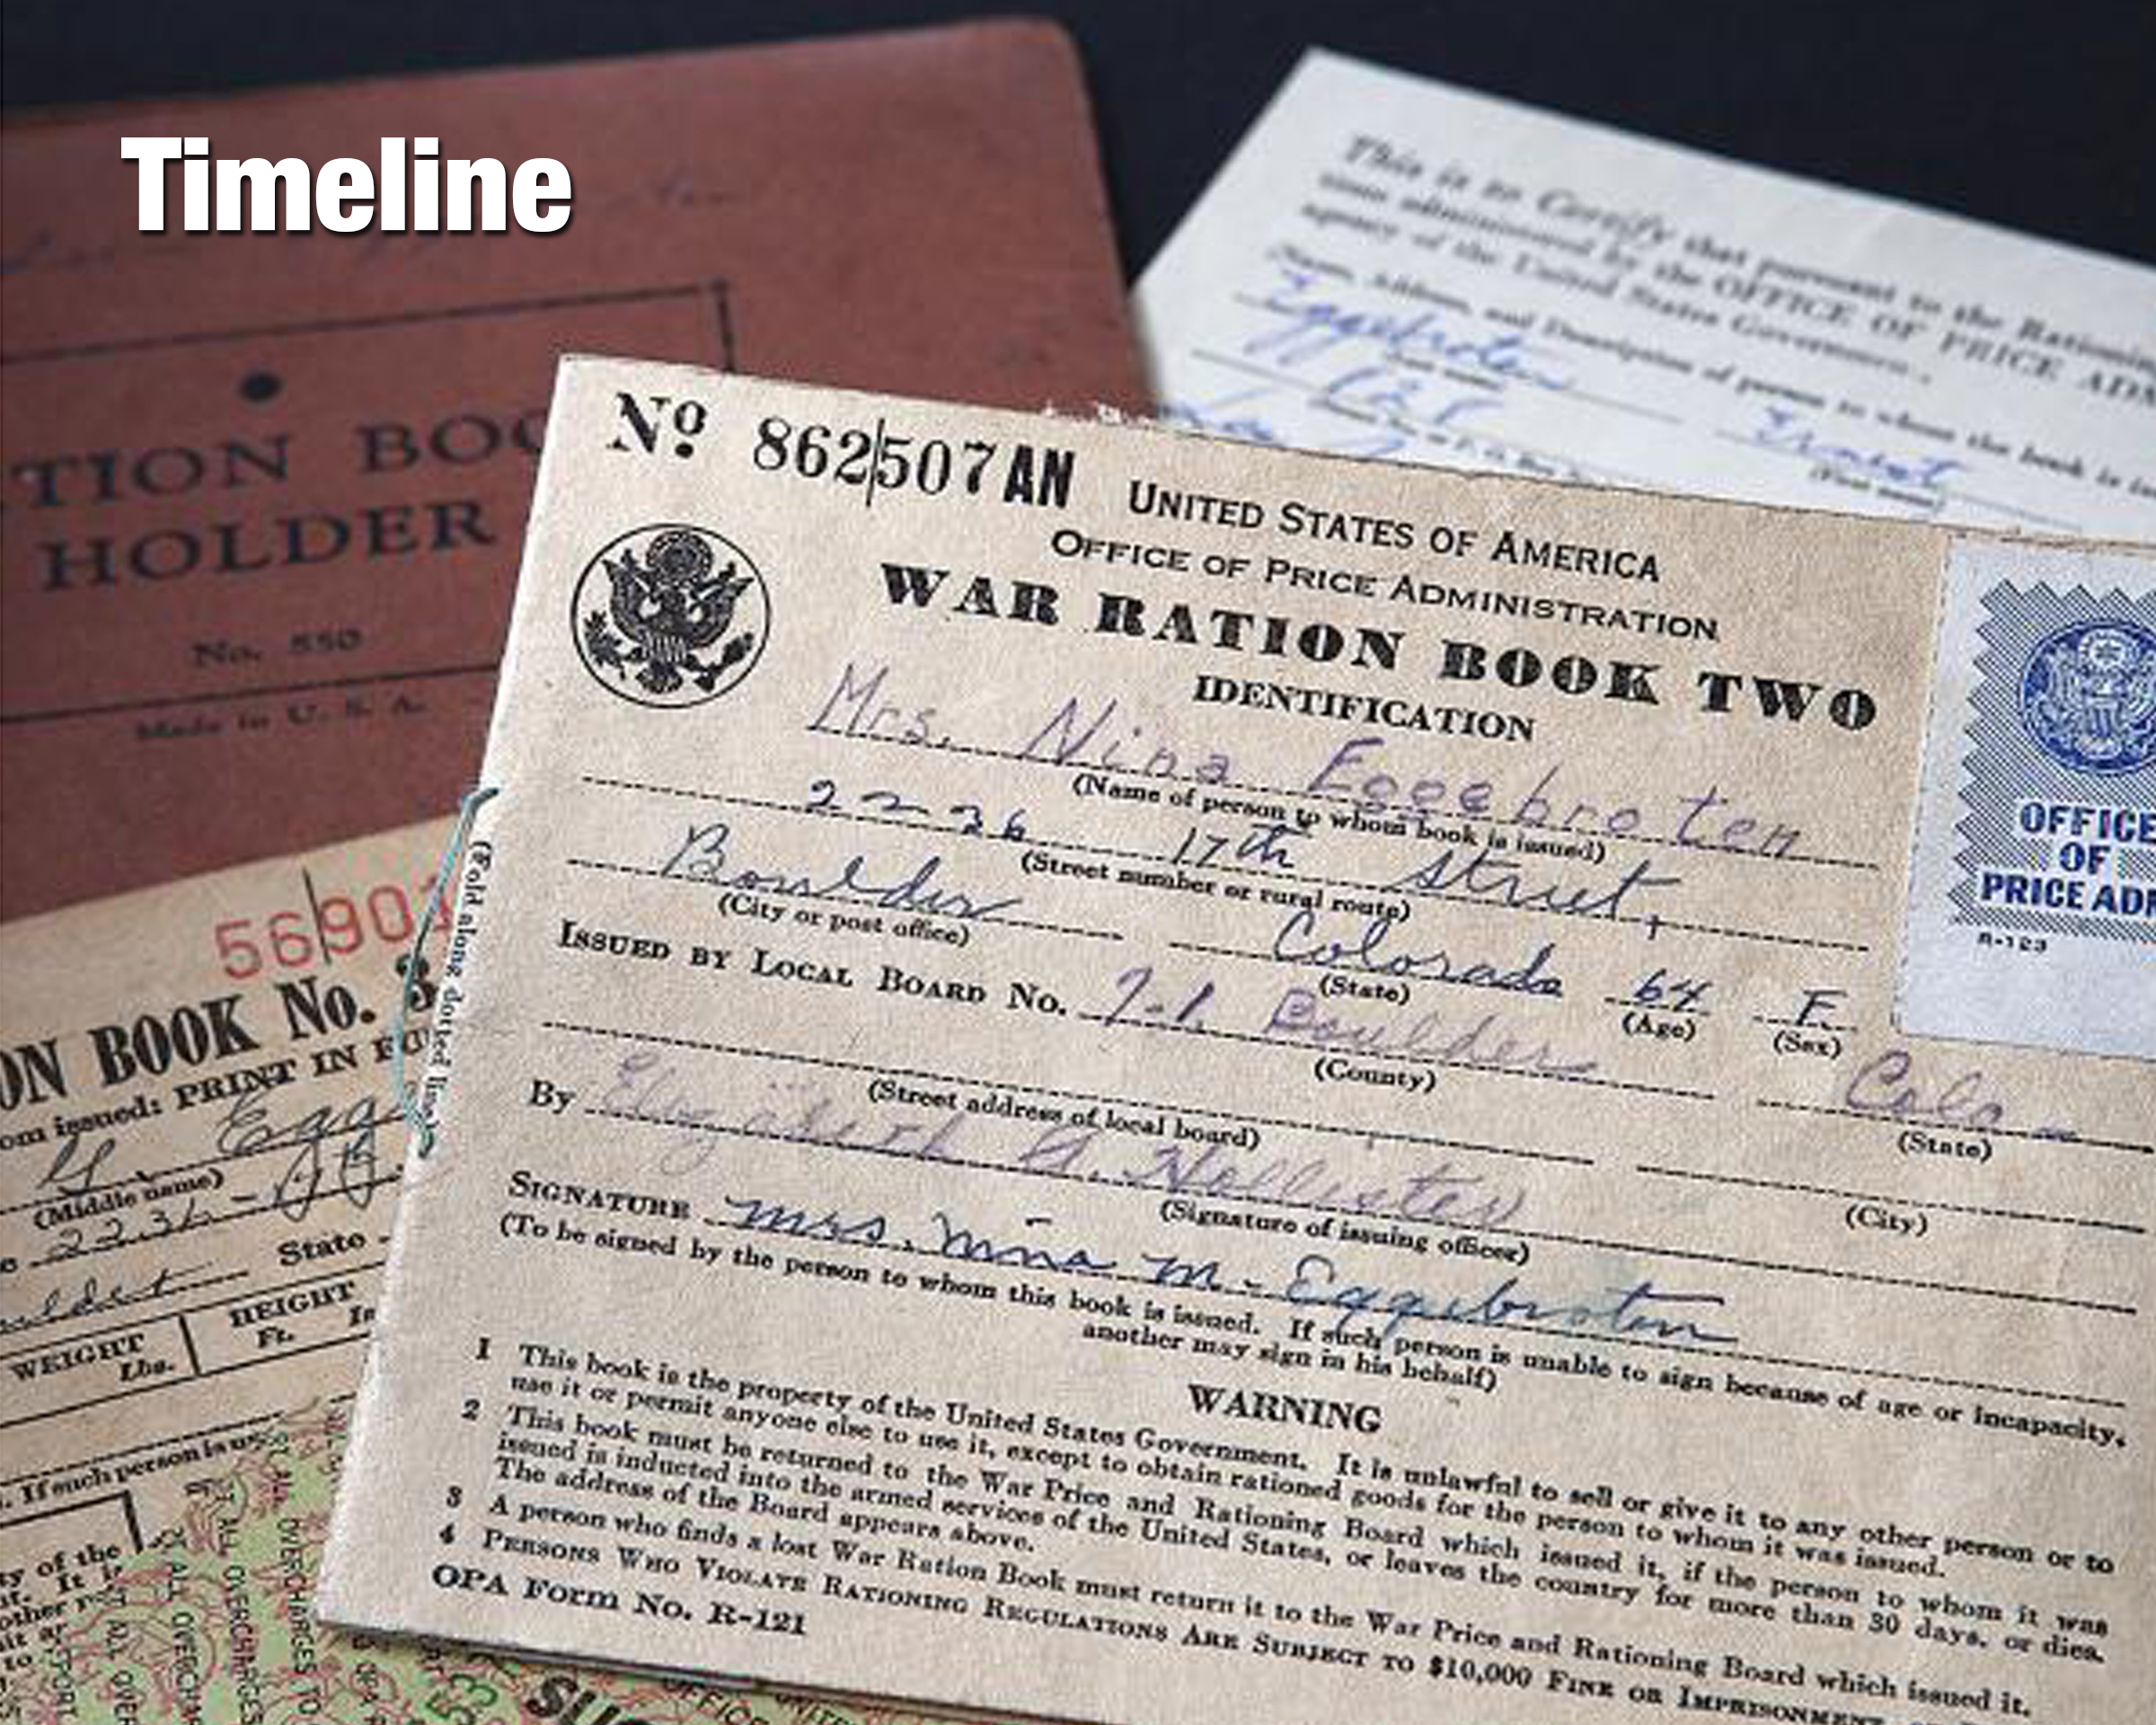 Timeline
TION BOO
HOLDER
No. 550
Made in U. S. A.
This is to Certify that pursuant to the Rationing
administered by the OFFICE OF PRICE ADM
agency of the United States Government.
(Name, Address, and Description of person to whom the book is
Eggebroten
Ernest
(First name)
No 862507 AN
UNITED STATES OF AMERICA
OFFICE OF PRICE ADMINISTRATION
WAR RATION BOOK TWO
IDENTIFICATION
OFFICE
OF
PRICE ADM
R-123
Mrs. Nina Eggebroten
(Name of person to whom book is issued)
2236 17th Street,
(Street number or rural route)
Boulder Colorado 64 F
(City or post office) (State) (Age) (Sex)
ISSUED BY LOCAL BOARD No. 7-1 Boulder Colo
(County) (State)
(Street address of local board) (City)
By Elizabeth G. Hollister
(Signature of issuing officer)
SIGNATURE Mrs. Nina M. Eggebroten
(To be signed by the person to whom this book is issued. If such person is unable to sign because of age or incapacity,
another may sign in his behalf)
WARNING
1 This book is the property of the United States Government. It is unlawful to sell or give it to any other person or to
use it or permit anyone else to use it, except to obtain rationed goods for the person to whom it was issued.
2 This book must be returned to the War Price and Rationing Board which issued it, if the person to whom it was
issued is inducted into the armed services of the United States, or leaves the country for more than 30 days, or dies.
The address of the Board appears above.
3 A person who finds a lost War Ration Book must return it to the War Price and Rationing Board which issued it.
4 PERSONS WHO VIOLATE RATIONING REGULATIONS ARE SUBJECT TO $10,000 FINE OR IMPRISONMENT
OPA Form No. R-121
(Fold along dotted line)
56901
ON BOOK No. 3
om issued: PRINT IN FU
Egge
(Middle name)
2236
State
WEIGHT
Lbs.
HEIGHT
Ft. In
. If such person is un
ty of the
It is
other
OVERCHARGES TO
ALL OVERCHARGES
53
SUG
OFFICE
UNITE